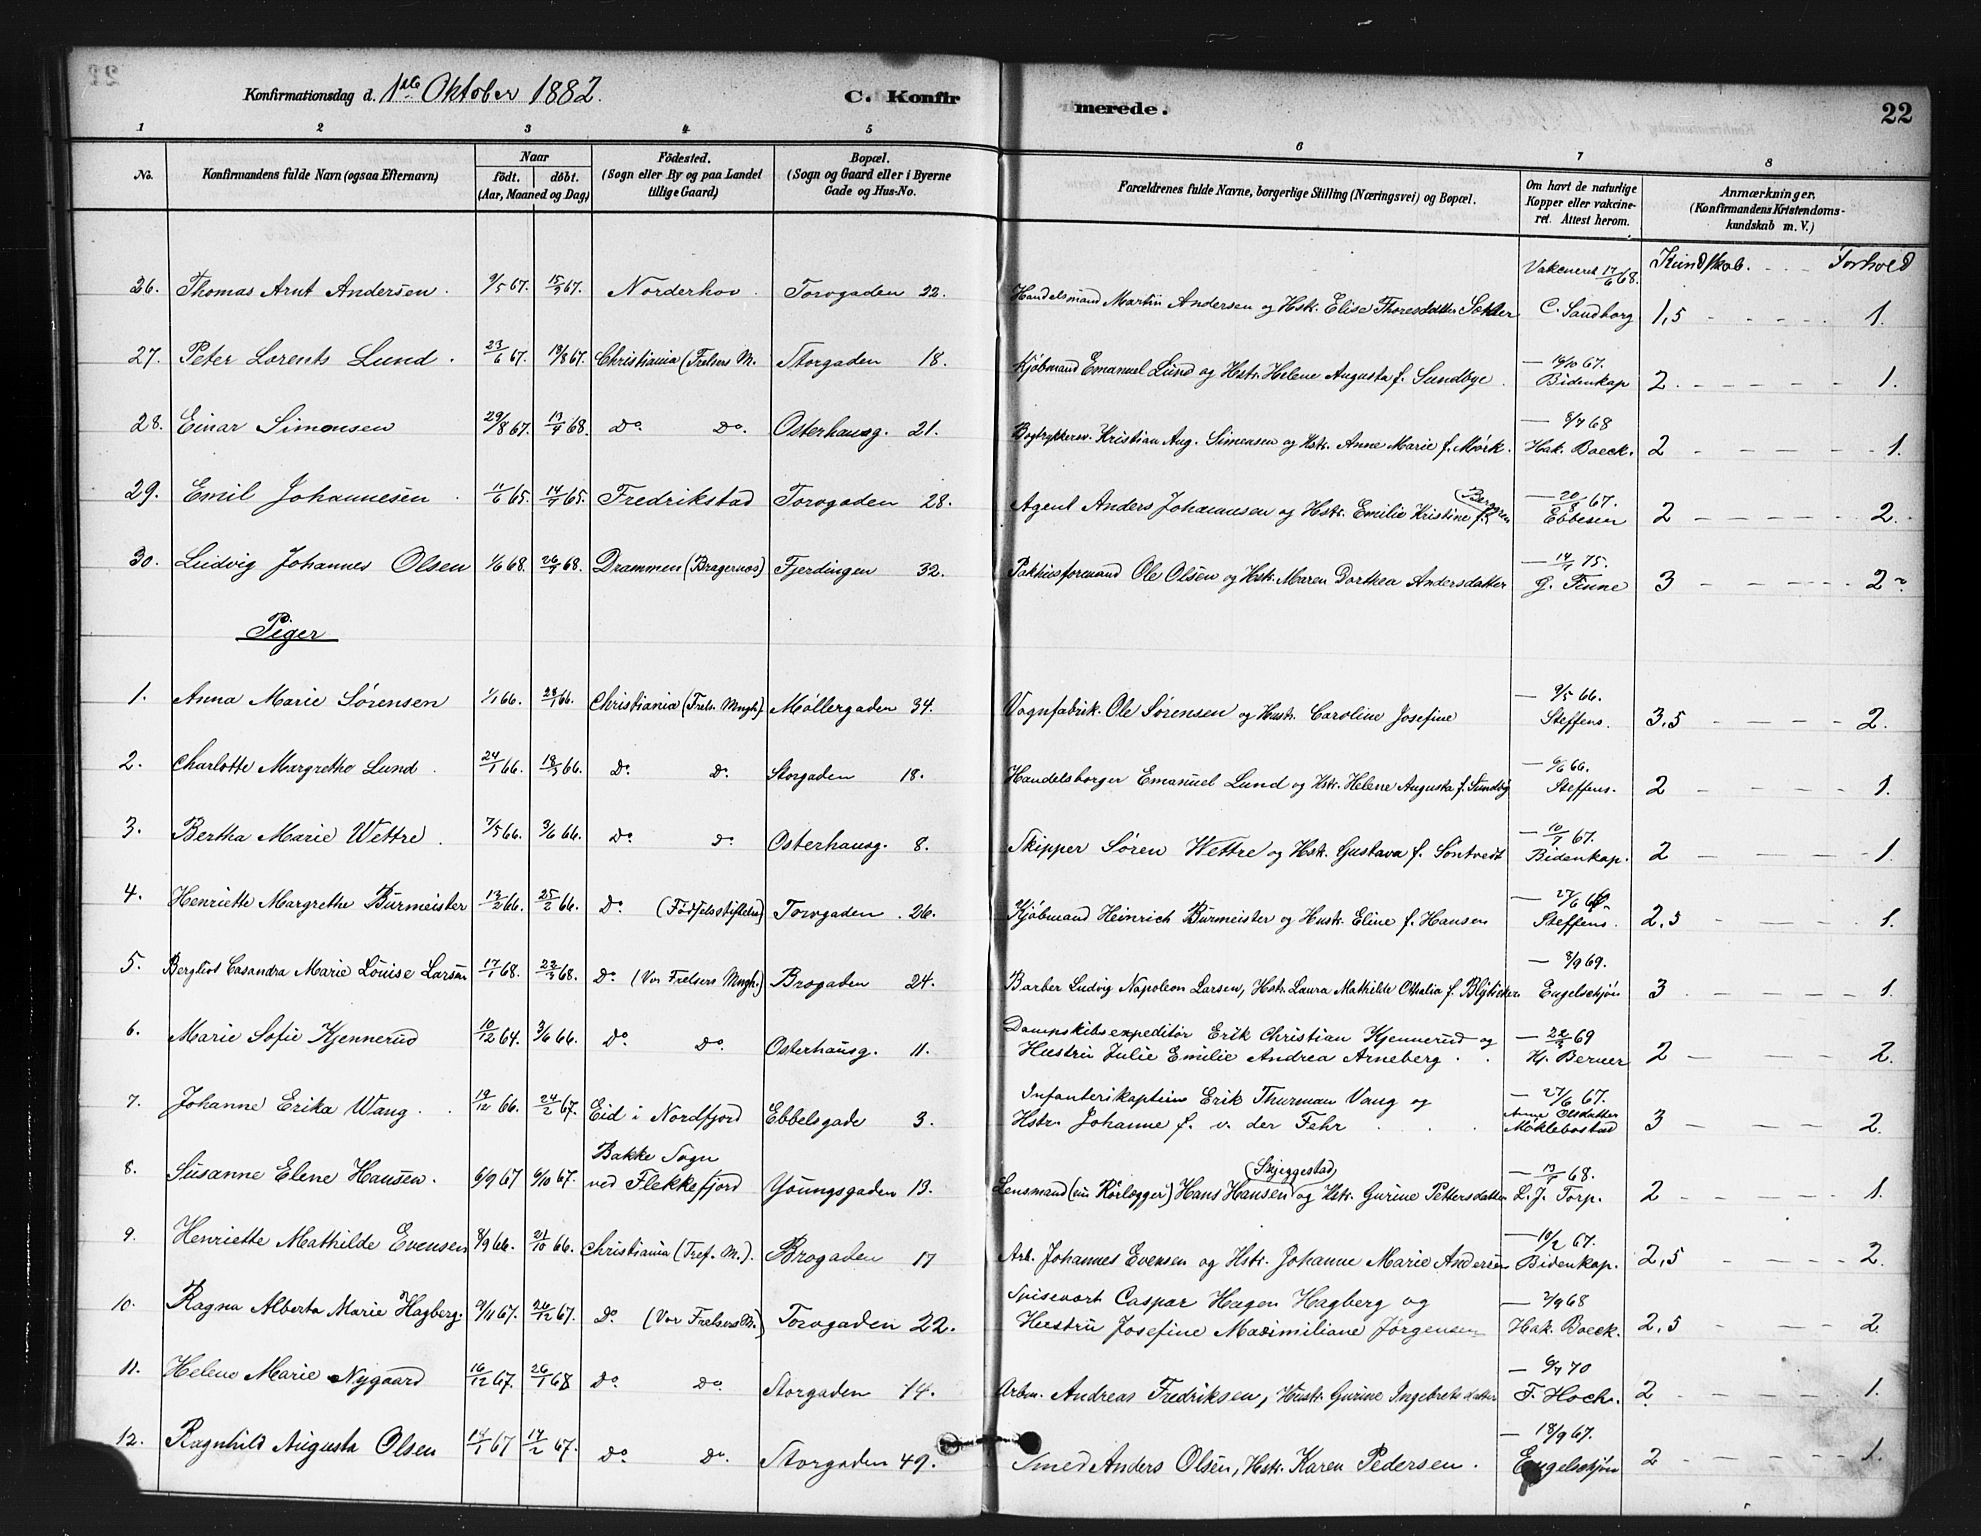 Konfirmationsdag d. 1ste Oktober 1882. C. Konfirmerede. 22
1 2 3 4 5 6 7 8
No. Konfirmandens fulde Navn (ogsaa Efternavn) Naar født. døbt. (Aar, Maaned og Dag) Fødested. (Sogn eller By og paa Landet tillige Gaard) Bopæl. (Sogn og Gaard eller i Byerne Gade og Hus-No. Forældrenes fulde Navne, borgerlige Stilling (Næringsvei) og Bopæl. Om havt de naturlige Kopper eller vakcineret. Attest herom. Anmærkninger. (Konfirmandens Kristendomskundskab m. V.)
Kundskab. Forhold
26. Thomas Arnt Andersen. 9/5 67. 15/9 67. Norderhov. Torvgaden 22. Handelsmand Martin Andersen og Hstr. Elise Thoresdatter Vakcineret 17/6 68. C. Sandborg 1,5 - - - - 1.
27. Peter Lorents Lund. 23/6 67. 18/8 67. Christiania (Frelsers M. Storgaden 18. Kjøbmand Emanuel Lund og Hstr. Helene Augusta f. Sundbye. — 16/10 67. Bidenkap 2. - - - - 1.
28. Einar Simensen 29/8 67. 13/4 68. Do. Do. Osterhausg. 21. Bogtrykkersv. Kristian Aug. Simensen og Hstr. Anne Marie f. Mørk. — 8/7 68 Hak. Boeck. 2 - - - - 1.
29. Emil Johannesen 11/6 65. 14/7 65. Fredrikstad Torvgaden 28. Agent Anders Johannesen og Hstr. Emilie Kristine f. Berggren — 20/8 67. Ebbesen 2 - - - - 2.
30. Ludvig Johannes Olsen 1/6 68. 26/7 68. Drammen (Bragernæs) Fjerdingen 32. Pakhusformand Ole Olsen og Hstr. Maren Dorthea Andersdatter — 14/1 75. G. Finne 3 - - - - 2
Piger
1. Anna Marie Sørensen 1/1 66. 28/1 66. Christiania (Frels. Mngh). Møllergaden 34. Vognfabrik. Ole Sørensen og Hustr. Caroline Josefine — 9/5 66. Steffens. 3,5 - - - - 2.
2. Charlotte Margrethe Lund. 24/1 66. 18/3 66. Do. Do. Storgaden 18. Handelsborger Emanuel Lund og Hstr. Helene Augusta f. Sundby — 6/6 66. Steffens. 2 - - - - 1.
3. Bertha Marie Wettre. 7/5 66. 3/6 66. Do. Do. Osterhausg. 8. Skipper Søren Wettre og Hstr. Gustava f. Sontvedt — 10/7 67. Bidenkap. 2 - - - - 1.
4. Henriette Margrethe Burmeister 13/2 66. 25/2 66. Do. (Fødselsstiftelse) Torvgaden. 26. Kjøbmand Heinrich Burmeister og Hustr. Eline f. Hansen — 27/6 66. Steffens. 2,5 - - - - 1.
5. Bergliot Casandra Marie Louise Larsen 17/1 68. 22/3 68. Do. (Vor Frelsers Mngh.) Brogaden 24. Barber Ludvig Napoleon Larsen, Hstr. Laura Mathilde Othalia f. — 8/9 69. Engelschjøn 3. - - - - 1.
6. Marie Sofie Kjennerud 10/12 64. 3/6 66. Do. Do. Osterhausg. 11. Dampskibsexpeditør Erik Christian Kjennerud og
Hustru Julie Emilie Andrea Arneberg. — 22/5 69 Hj. Berner 2 - - - - 2.
7. Johanne Erika Wang. 19/12 66. 24/2 67. Eid i Nordfjord Ebbelsgade 3. Infanterikaptein Erik Thurman Vang og
Hstr. Johanne f. v. der Fehr — 27/6 67. Anne Olsdatter Møklebostad 3 - - - - 2.
8. Susanne Elene Hansen. 6/9 67 6/10 67. Bakke Sogn ved Flekkefjord Youngsgaden 13. Lensmand Hans Hansen (Skjeggestad) og Hstr. Gurine Pettersdatter — 13/7 68. L. J. Torp. 2 - - - - 1.
9. Henriette Mathilde Evensen 8/9 66. 21/10 66. Christiania (Tref. M.). Brogaden 17 Arb. Johannes Evensen og Hstr. Johanne Marie Andersen — 18/2 67. Bidenkap. 2,5 - - - - 2.
10. Ragna Alberta Marie Hagberg. 9/11 67. 20/12 67. Do. (Vor Frelsers M.) Torvgaden 22. Spisevært Caspar Hagen Hagberg og
Hustru Josefine Maximiliane Jørgensen — 2/9 68 Hak. Boeck. 2,5 - - - - 2.
11. Helene Marie Nygaard 16/12 67. 26/1 68 Do. Do. Storgaden 14. Arbm. Andreas Fredriksen, Hustr. Gurine Ingebretsdatter — 6/7 70 F. Hoch. 2. - - - - 1.
12. Ragnhild Augusta Olsen 14/1 67 17/2 67. Do. Do. Storgaden 49. Smed Anders Olsen, Hstr. Karen Pedersen. — 18/9 67. Engelschjøn 2 - - - - 1.